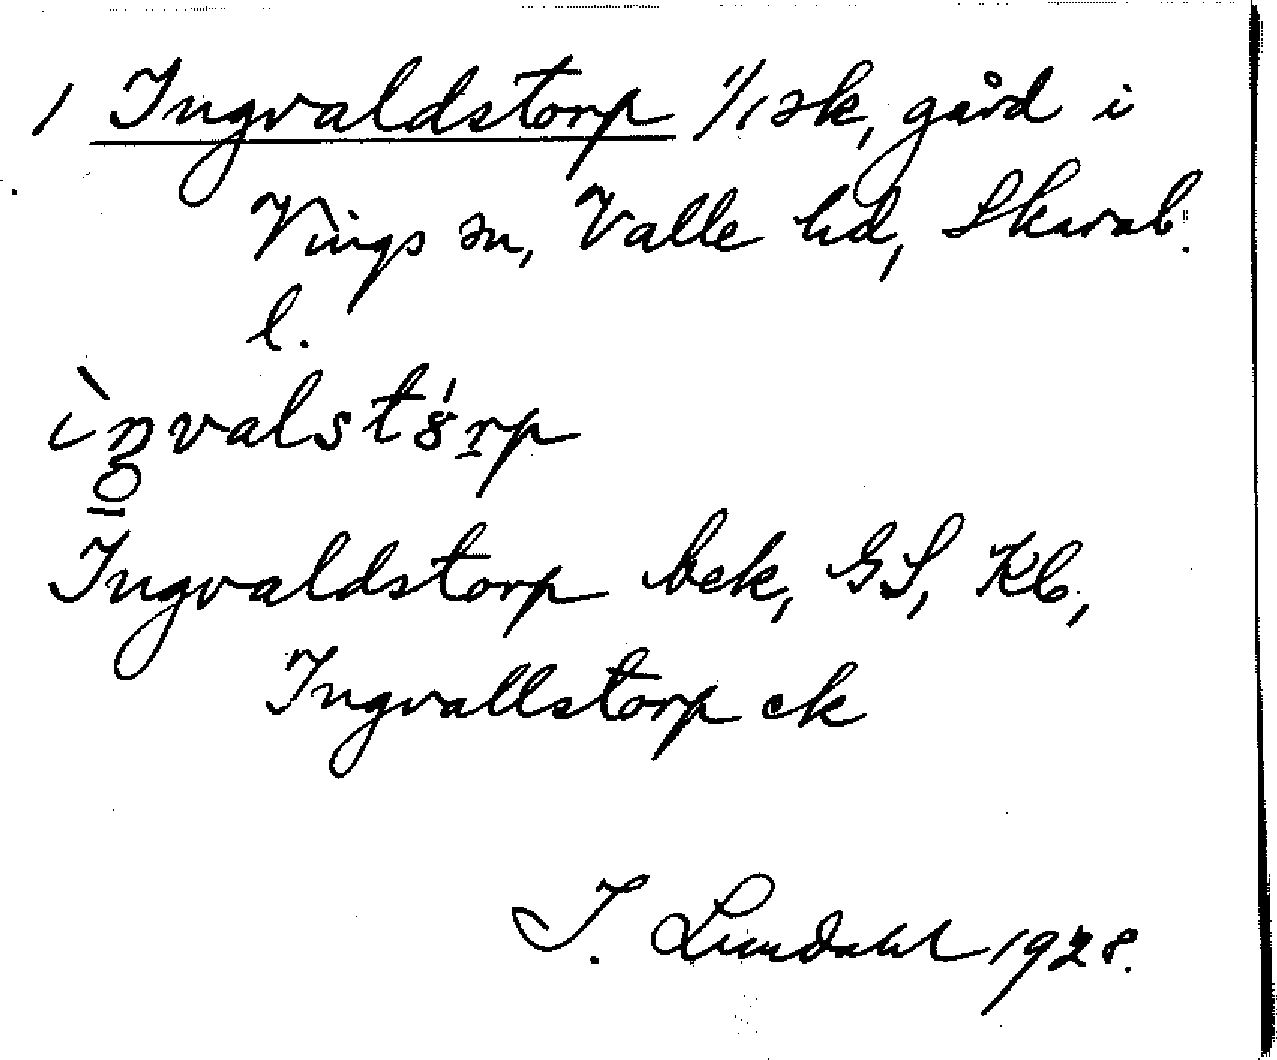 1 Ingvaldstorp 1/1 sk, gård i
Vings sn, Valle hd, Skarab.
l.
ìŋvalstórp
Ingvaldstorp bek, GS, Kb,
Ingvallstorp ek
I. Lundahl 1928.